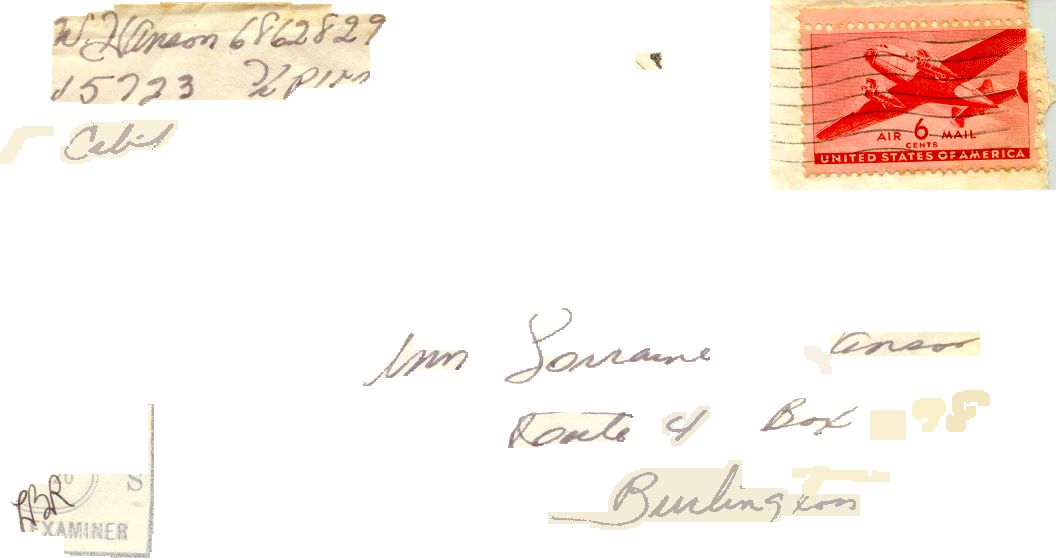 W. Hanson 6862829
AIR 6 MAIL
CENTS
UNITED STATES OF AMERICA
15723
Lorraine anson
Route 4 Box 98
Burlington
S
LBR
EXAMINER